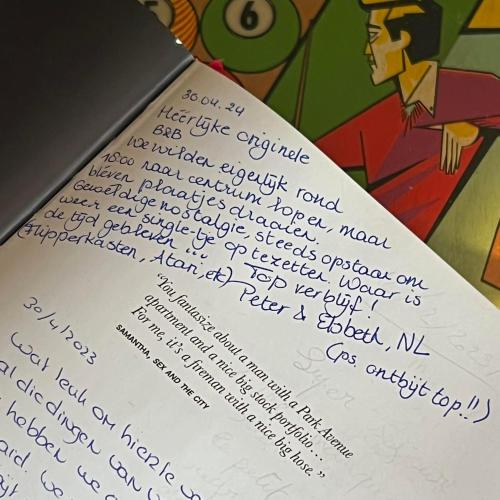 6
30.04.24
Heerlijke originele
B&B
We wilden eigenlijk rond
1800 naar centrum lopen, maar
bleven plaatjes draaien.
Geweldige nostalgie, steeds opstaan om
weer een single-tje op te zetten. Waar is
de tijd gebleven ...
Top verblijf!
(Flipperkasten, Atari, etc)
Peter & Elsbeth, NL
(ps. ontbijt top..!!)
"You fantasize about a man with a Park Avenue
apartment and a nice big stock portfolio ...
For me, it's a fireman with a nice big hose."
SAMANTHA, SEX AND THE CITY
30/4/2023
Wat leuk om hier te
al die dingen van
hebben we
we